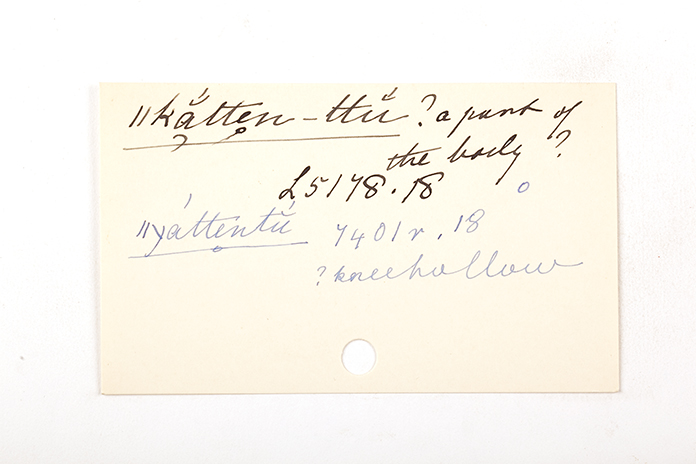 ‖kắttẹn-ttŭ́ ? a part of
the body ?
L5178.18
‖yáttẹntŭ́ 7401r.18
? kneehollow